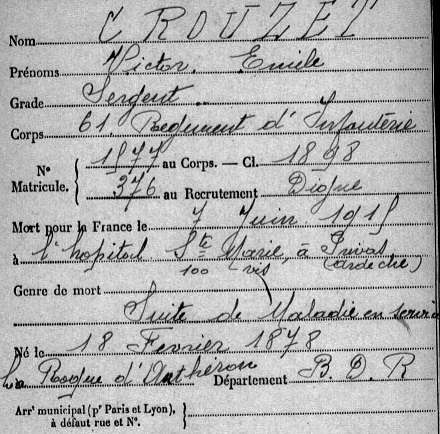 Nom CROUZET
Prénoms Victor Emile
Grade Sergent
Corps 61 Regiment d'Infanterie
No Matricule. { 1977 au Corps. — Cl. 1898
376 au Recrutement Digne
Mort pour la France le 7 Juin 1915
à l'hopital Ste Marie, à Privas
100 vis (ardèche)
Genre de mort
Suite de Maladie en service
Né le 18 Fevrier 1878
La Roque d'Anthéron Département B. D. R
Arrt municipal (pr Paris et Lyon), à défaut rue et No.